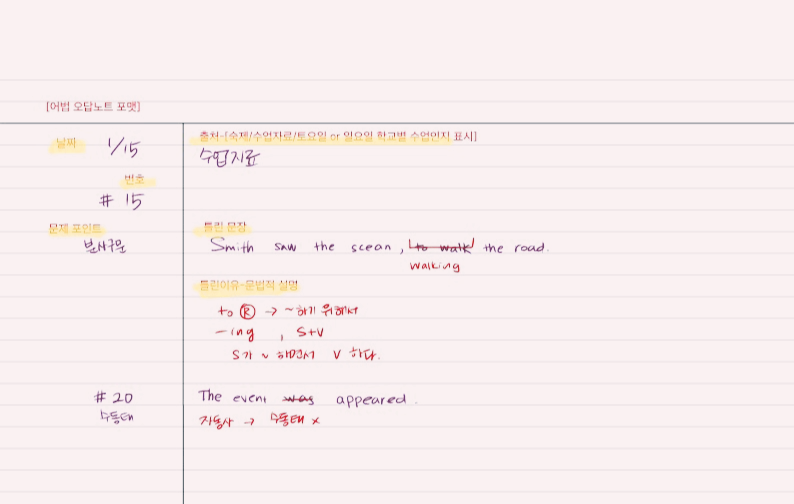 [어법 오답노트 포맷]
날짜 1/15
출처-[숙제/수업자료/토요일 or 일요일 학교별 수업인지 표시]
수업자료
번호
# 15
문제 포인트
분사구문
틀린 문장
Smith saw the scean, to walk the road.
walking
틀린이유-문법적 설명
to Ⓡ → ~하기 위해서
-ing , S+V
S가 ~ 하면서 V 하다.
# 20
수동태
The event was appeared.
자동사 → 수동태 x